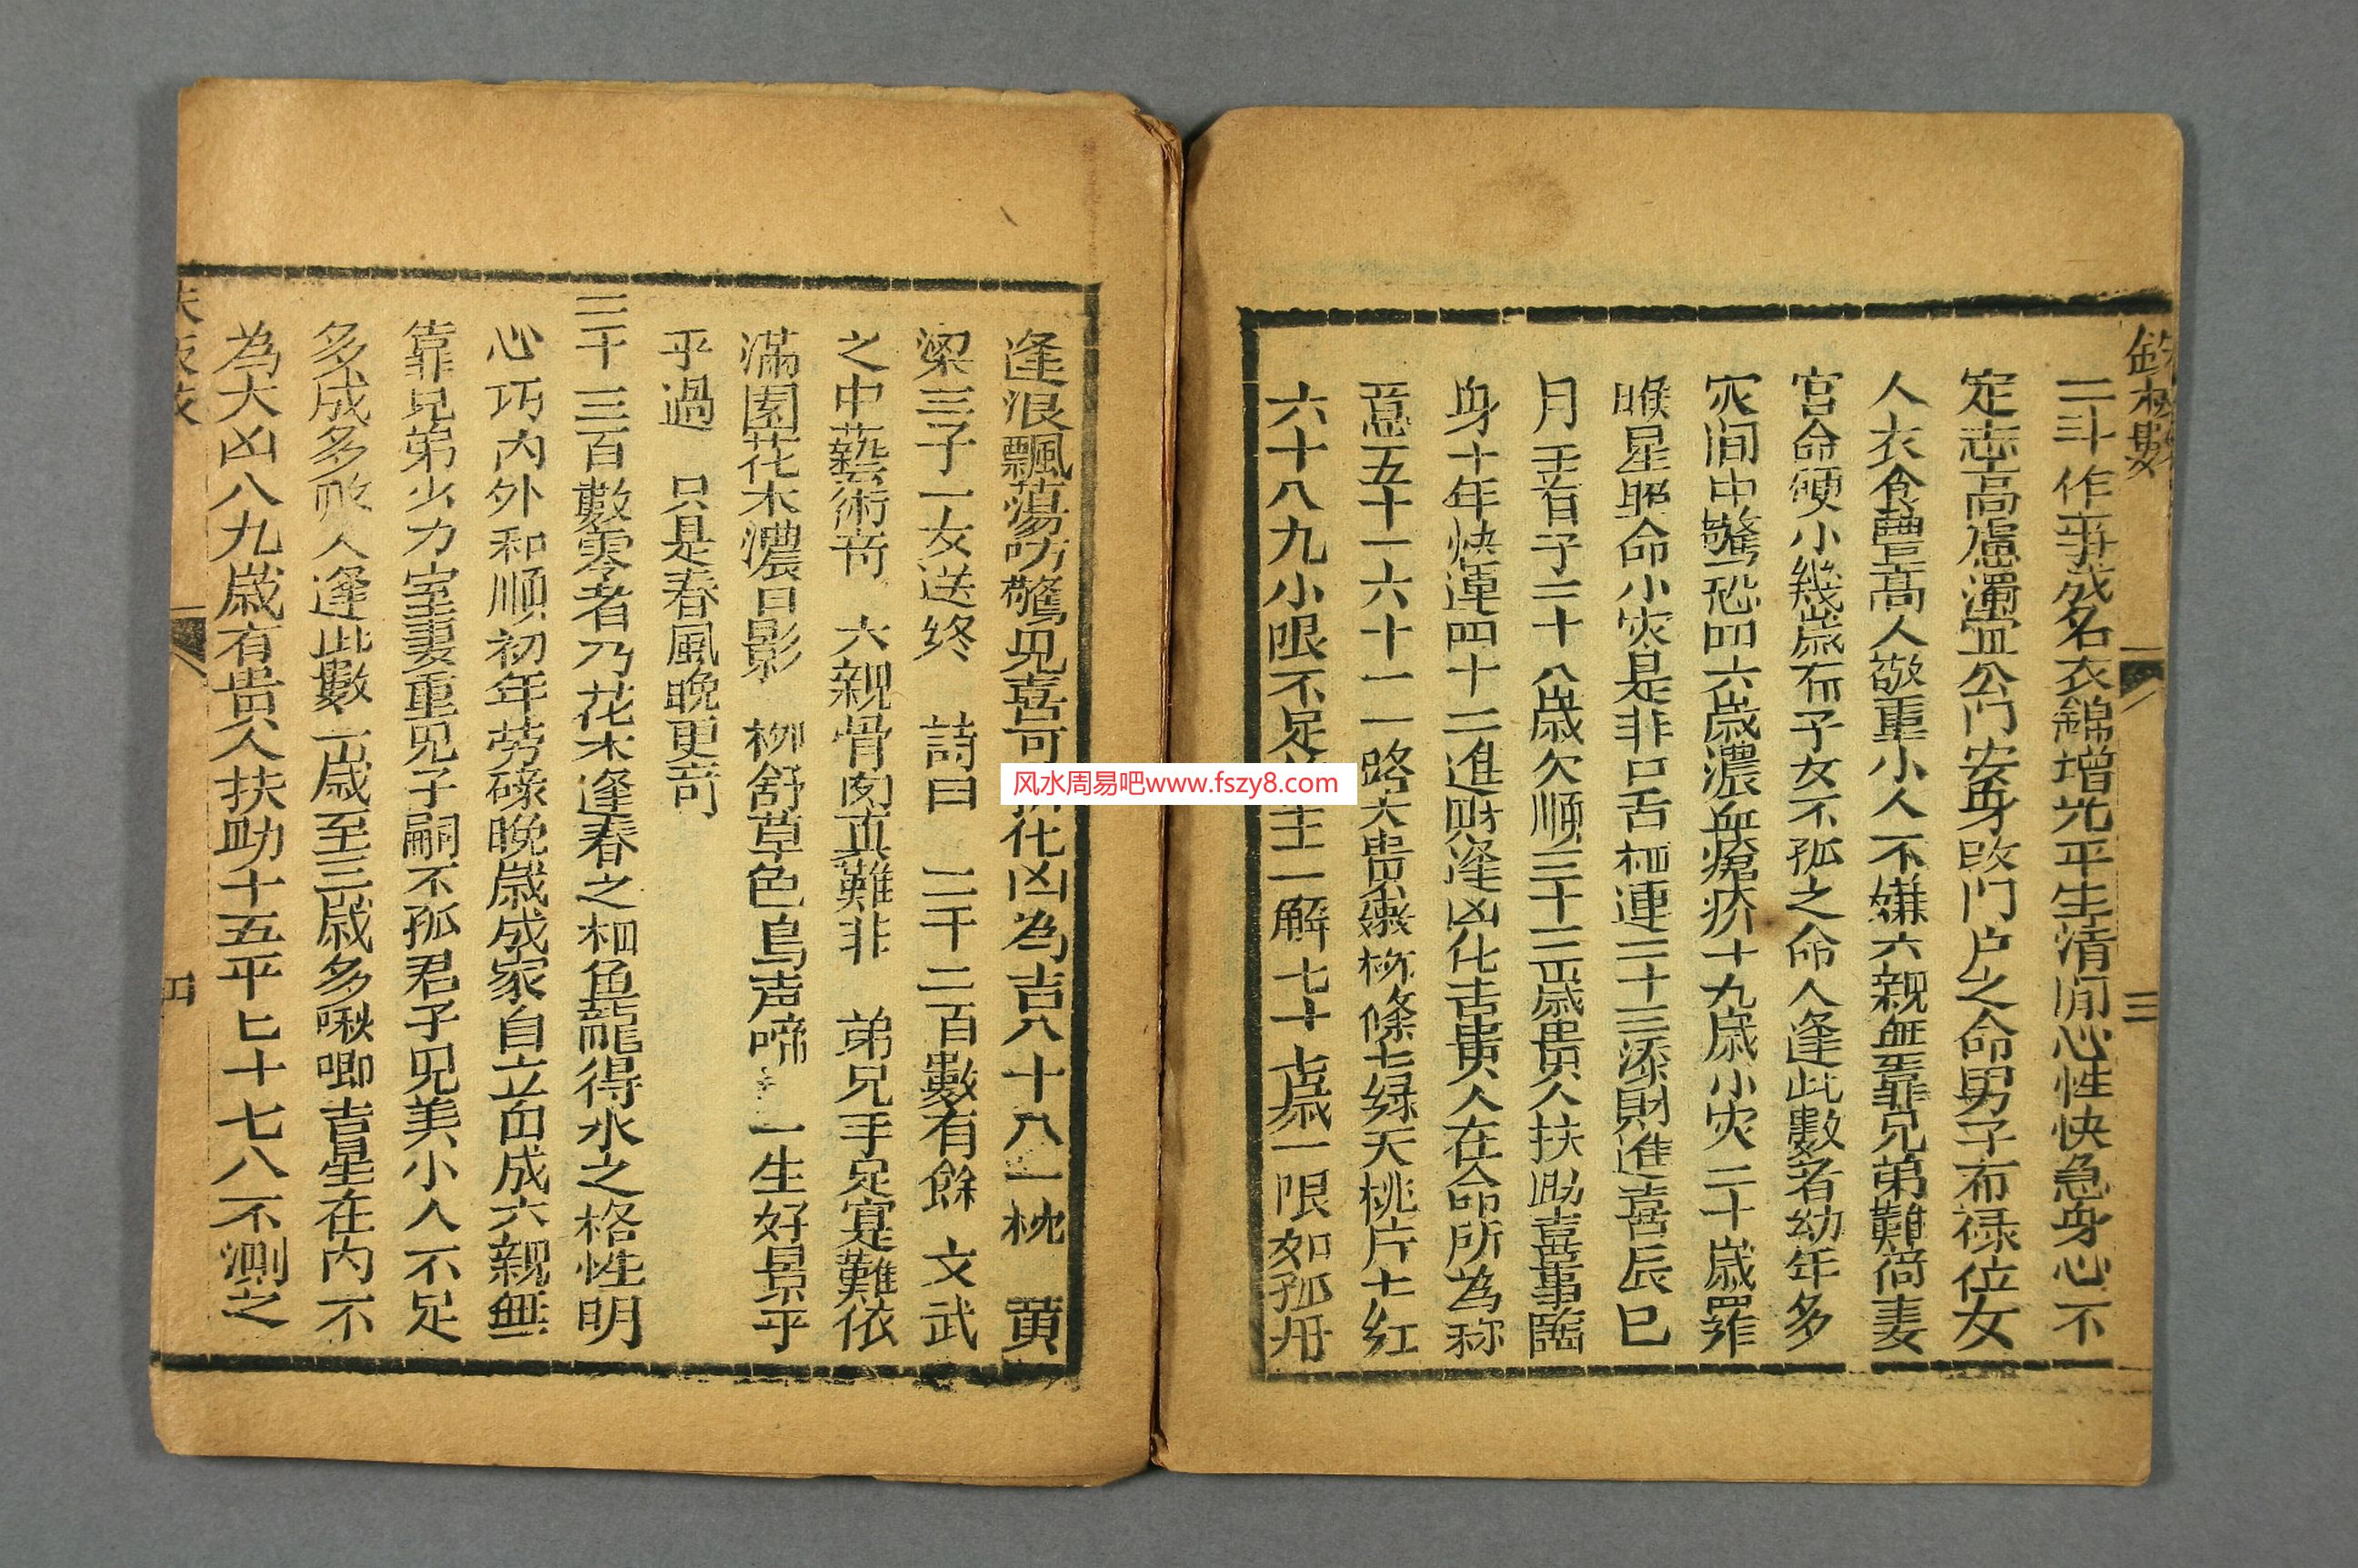 二斗作事成名衣錦增光平生清閒心性快急身心不
定志高慮濁宜公門安身改門户之命男子布禄位女
人衣食豊高人敬重小人不嫌六親無靠兄弟難倚妻
宫命硬小幾歲有子女不孤之命人逢此數者幼年多
灾间中驚恐四六歲濃血瘡疾十九歲小灾二十歲罪
喉星照命小灾是非口舌相連二十三添財進喜辰巳
月壬首子二十八歲欠順三十二歲貴人扶助喜事臨
身十年快運四十二進財逢凶化吉貴人在命所為称
意五十一六十一一路大貴条嫩柳條七绿天桃片七红
六十八九小限不足主一解七十七歲一限如孤舟
三
逢浪飄蕩方驚見喜可化凶為吉八十八一枕 黄
梁三子一女送终 詩曰 二千二百數有餘 文武
之中藝術奇 六親骨肉真難非 弟兄手足寔難依
滿園花木濃日影 柳舒草色鳥声啼 一生好景乎
乎過 只是春風晚更奇
二千三百數零者乃花木逢春之相魚龍得水之格性明
心巧内外和順初年劳碌晚歲成家自立自成六親無
靠兄弟少力室妻重见子嗣不孤君子见美小人不足
多成多敗人逢此數一歲至三歲多啾唧吉星在内不
為大凶八九歲有貴人扶助十五平七十七八不測之
四
风水周易吧www.fszy8.com